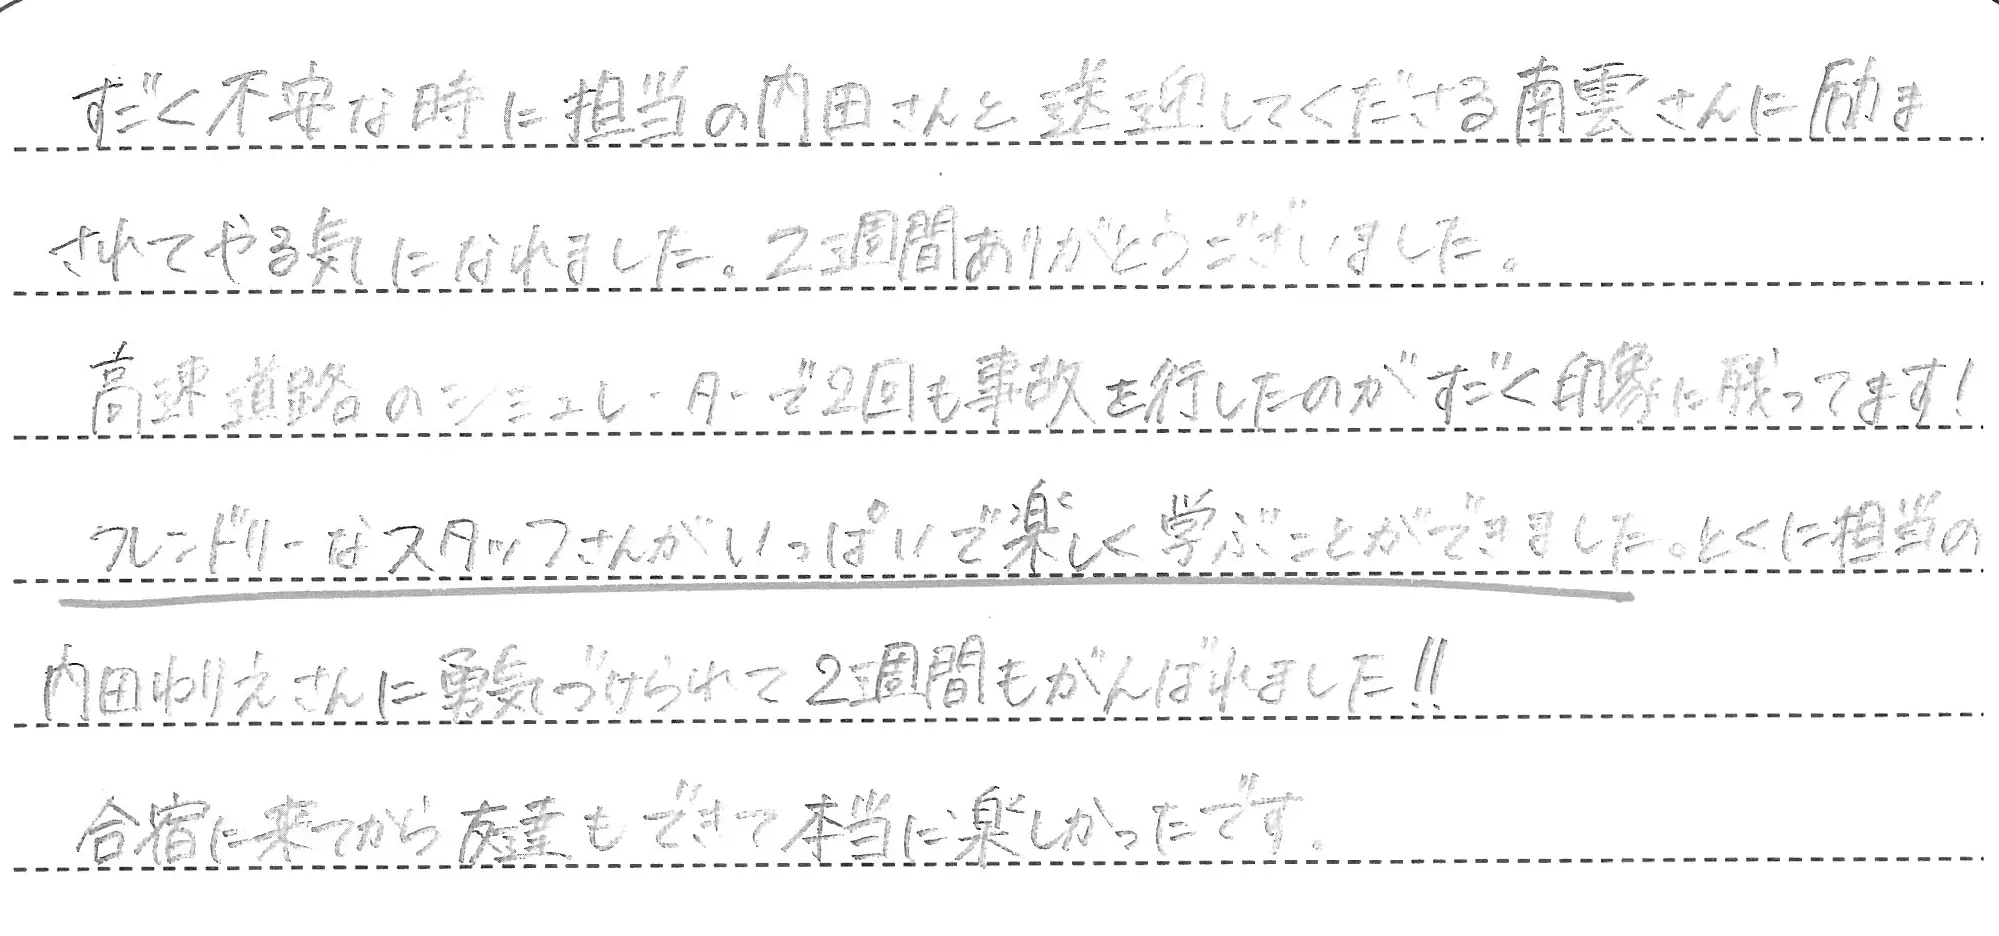 すごく不安な時に担当の内田さんと送迎してくださる南雲さんに励ま
されてやる気になれました。2週間ありがとうございました。
高速道路のシミュレーターで2回も事故を行したのがすごく印象に残ってます!
フレンドリーなスタッフさんがいっぱいで楽しく学ぶことができました。とくに担当の
内田ゆりえさんに勇気づけられて2週間もがんばれました!!
合宿に来てから友達もできて本当に楽しかったです。